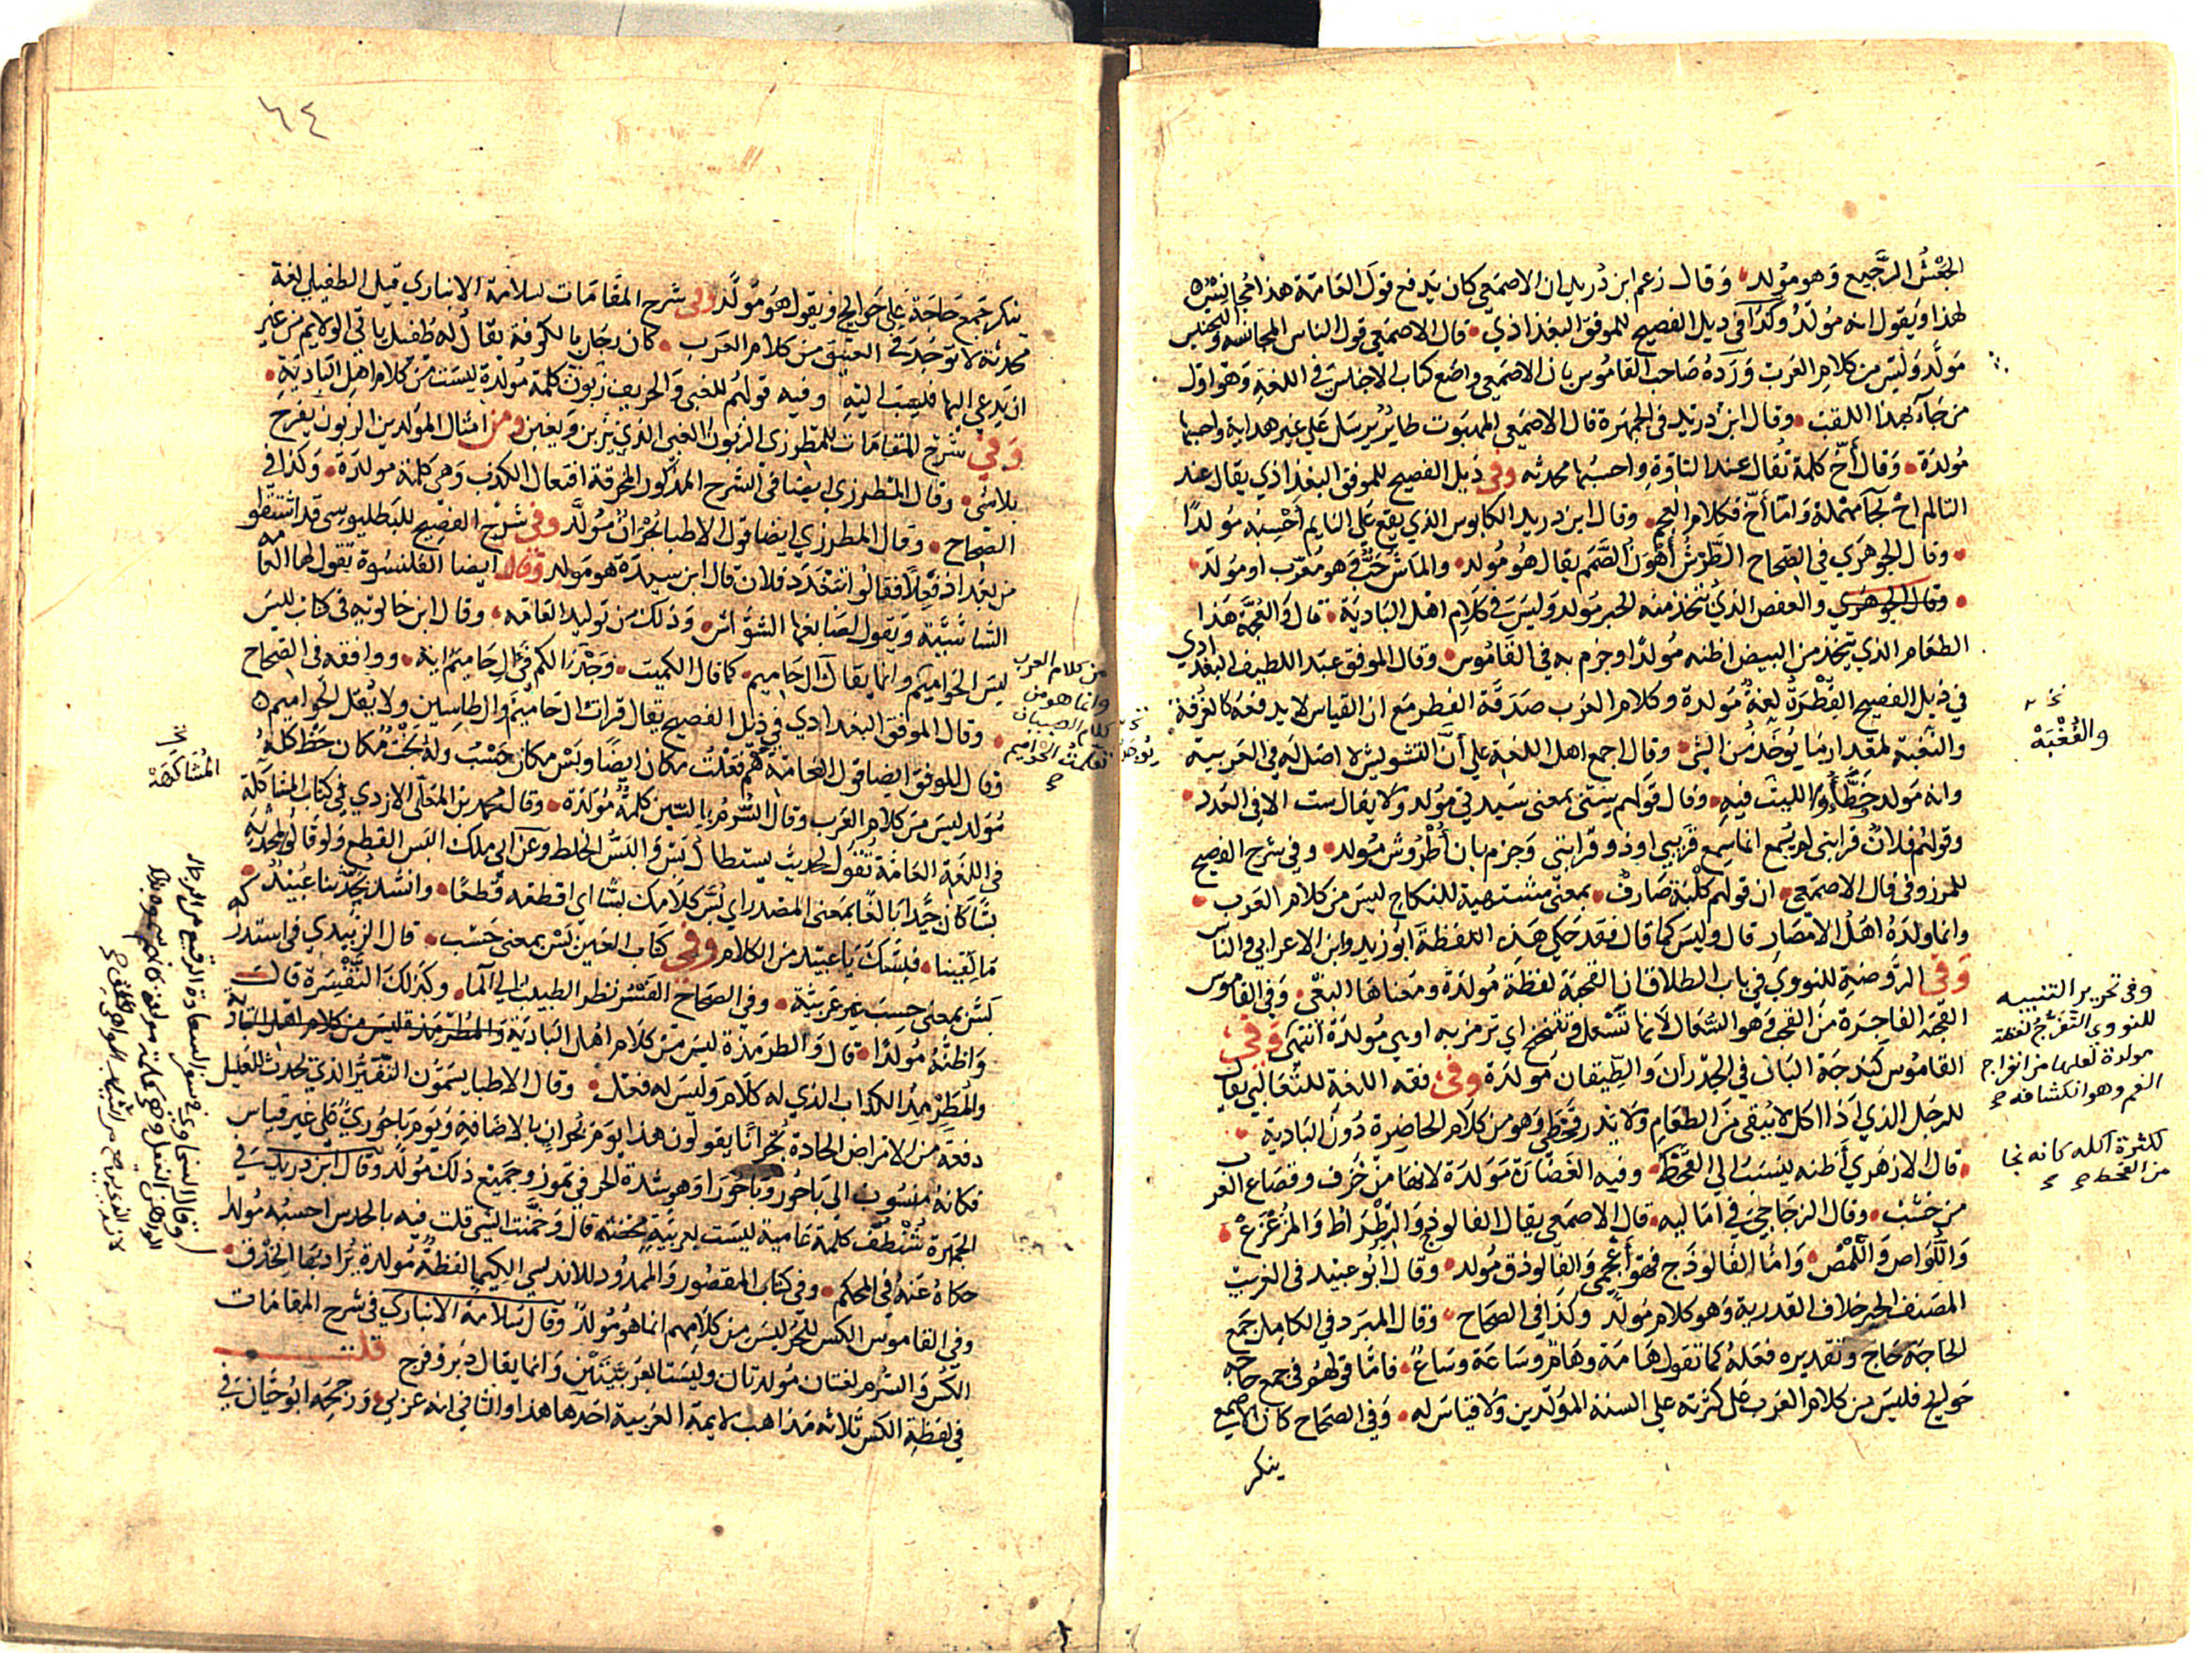 الجَعْسُ الرجيع وهو مولد وقال زعم ابن دريد ان الاصمعي كان يدفع قول العامة هذا مجانس
لهذا ويقول انه مولد وكذا في ذيل الفصيح للموفق البغدادي قال الاصمعي قول الناس المجانسة والتجنيس
مولد وليس من كلام العرب ورده صاحب القاموس بان الاصمعي واضع كتاب الاجناس في اللغة وهو اول
من جاء بهذا اللقب وقال ابن دريد في الجمهرة قال الاصمعي المهبوت طاير يرسل على غير هداية واحسبها
مولدة وقال أخّ كلمة تقال عند التاوه واحسبها محدثه وفي ذيل الفصيح للموفق البغدادي يقال عند
التالم اح بحاء مهملة واما أخ فكلام العجم وقال ابن دريد الكابوس الذي يقع على النايم احسبه مولدا
وقال الجوهري في الصحاح الطَّرَش أهون الصمم يقال هو مولد والماش حب وهو معرب او مولد
وقال الجوهري والعفص الذي يتخذ منه الحبر مولد وليس في كلام اهل البادية قال والعجة هذا
الطعام الذي يتخذ من البيض اظنه مولدا وجزم به في القاموس وقال الموفق عبد اللطيف البغدادي
في ذيل الفصيح الفِطْرَة لغة مولدة وكلام العرب صدقة الفطر مع ان القياس لا يدفعه كالغرفة
والنغبة لمقدار ما يؤخذ من الشي وقال اجمع اهل اللغة على أنّ التشويش لا اصل له في العربية
وانه مولد وخطّأوا الليث فيه وقال قولهم ستي بمعنى سيدتي مولد ولا يقال ست الا في العدد
وقولهم فلان قرابتي لم يسمع انما سمع قريبي او ذو قرابتي وجزم بان أطروش مولد وفي شرح الفصيح
للمرزوقي قال الاصمعي ان قولهم كلبة صارف بمعنى مشتهية للنكاح ليس من كلام العرب
وانما ولده اهل الامصار قال وليس كما قال فقد حكى هذه اللفظة ابو زيد وابن الاعرابي والناس
وفي الروضة للنووي في باب الطلاق ان القحبة لفظة مولدة ومعناها البغي وفي القاموس
القحبة الفاجرة من القحب وهو السعال لانها تسعل وتنحنح اي ترمز به او هي مولدة انتهى وفي
القاموس كندجة الباني في الجدران والطيقان مولدة وفي فقه اللغة للثعالبي يقال
للرجل الذي اذا اكل لا يبقي من الطعام ولا يذر قحطي وهو من كلام الحاضرة دون البادية
قال الازهري أظنه ينسب الى القحط وفيه الغضارة مولدة لانها من خزف وقصاع العرب
من خشب وقال الزجاجي في اماليه قال الاصمعي يقال الفالوذ والسِّرِطْراط والمزعزع
واللواص واللمص واما الفالوذج فهو أعجمي والفالوذق مولد وقال ابو عبيد في الغريب
المصنف الجبر خلاف القدرية وهو كلام مولد وكذا في الصحاح وقال المبرد في الكامل جمع
الحاجة حاج وتقديره فعلة كما تقول هامة وهام وساعة وساع فاما قولهم في جمع حاجه
حوايج فليس من كلام العرب على كثرته على السنة المولدين ولا قياس له وفي الصحاح كان الاصمعي
ينكر
والنُّغْبَة
وفي تحرير التنبيه
للنووي التفرج لفظة
مولدة لعلها من انفراج
الغم وهو انكشافه
لكثرة اكله كانه نجا
من القحط
٦٤
ينكر جمع حاجة على حوايج ويقول هو مولد وفي شرح المقامات لسلامة الانباري قيل الطفيلي لغة
محدثة لا توجد في العتيق من كلام العرب كان رجل بالكوفة يقال له طفيل ياتي الولايم من غير
ان يدعى اليها فنسب اليه وفيه قولهم للغبي والحريف زبون كلمة مولدة ليست من كلام اهل البادية
وفي شرح المقامات للمطرزي الزبون الغبي الذي يزبن ويغبن ومن امثال المولدين الزبون يفرح
بلا شي وقال المطرزي ايضا في الشرح المذكور المخرقة افتعال الكذب وهي كلمة مولدة وكذا في
الصحاح وقال المطرزي ايضا قول الاطبا بُحْران مولد وفي شرح الفصيح للبطليوسي قد اشتقوا
من بغداد فعلا فقالوا تبغدد فلان قال ابن سيده هو مولد وقال ايضا القلنسوة تقول لها العامه
الشاشية ويقول لصانعها الشواش وذلك من توليد العامه وقال ابن خالويه في كتاب ليس
ليس الحواميم وانما يقال آل حاميم كما قال الكميت وجدنا لكم في آل حاميم اية ووافقه في الصحاح
وقال الموفق البغدادي في ذيل الفصيح يقال قرات آل حاميم وآل طاسين ولا يقل الحواميم
وقال الموفق ايضا قول العامة هُم فعلت مكان ايضا وبَسْ مكان حَسْبُ وله بخت مكان حظ كله
مولد ليس من كلام العرب وقال السُّرم بالسين كلمة مولدة وقال محمد بن المعلى الازدي في كتاب المشاكلة
في اللغة العامة تقول لحديث يستطال بَسْ والبَسُّ الخلط وعن ابي ملك البس القطع ولو قالوا لمحدثه
بسّا كان جيدا بالغا بمعنى المصدر اي بُسّ كلامك بسّا اي اقطعه قطعا وانشد يحدثنا عبيد
ما لقينا فبسك يا عبيد من الكلام وفي كتاب العين بَسْ بمعنى حسب قال الزبيدي في استدراكه
بس بمعنى حسب غير عربية وفي الصحاح الفَسْر نظر الطبيب الى الما وكذلك التَّفْسِرة قال
واظنه مولدا قال والطرمذة ليس من كلام اهل البادية
والمُطَرْمِذ الكذاب الذي له كلام وليس له فعل وقال الاطبا يسمون التغير الذي يحدث للعليل
دفعة من الامراض الحادة بُحْرانا يقولون هذا يوم بحران بالاضافة ويوم باحوري على غير قياس
فكانه منسوب الى باحور وباحورا وهو شدة الحر في تموز وجميع ذلك مولد وقال ابن دريد في
الجمهرة شُنْطُف كلمة عامية ليست بعربية محضة قال وخمّنت الشي قلت فيه بالحدس احسبه مولدا
حكاه عنه في المحكم وفي كتاب المقصور والممدود للاندلسي الكيميا لفظة مولدة يراد بها الحذق
وفي القاموس الكس للحر ليس من كلامهم انما هو مولد وقال سلامة الانباري في شرح المقامات
الكس والسُّرم لغتان مولدتان وليستا بعربيتين وانما يقال دبر وفرج قلت
في لفظة الكس ثلاثه مذاهب لايمة العربية احدها هذا والثاني انه عربي ورجحه ابو حيان في
من كلام العرب
وانما هو من
كلام الصبيان
تعلمت الحواميم
المُشاكَهَة